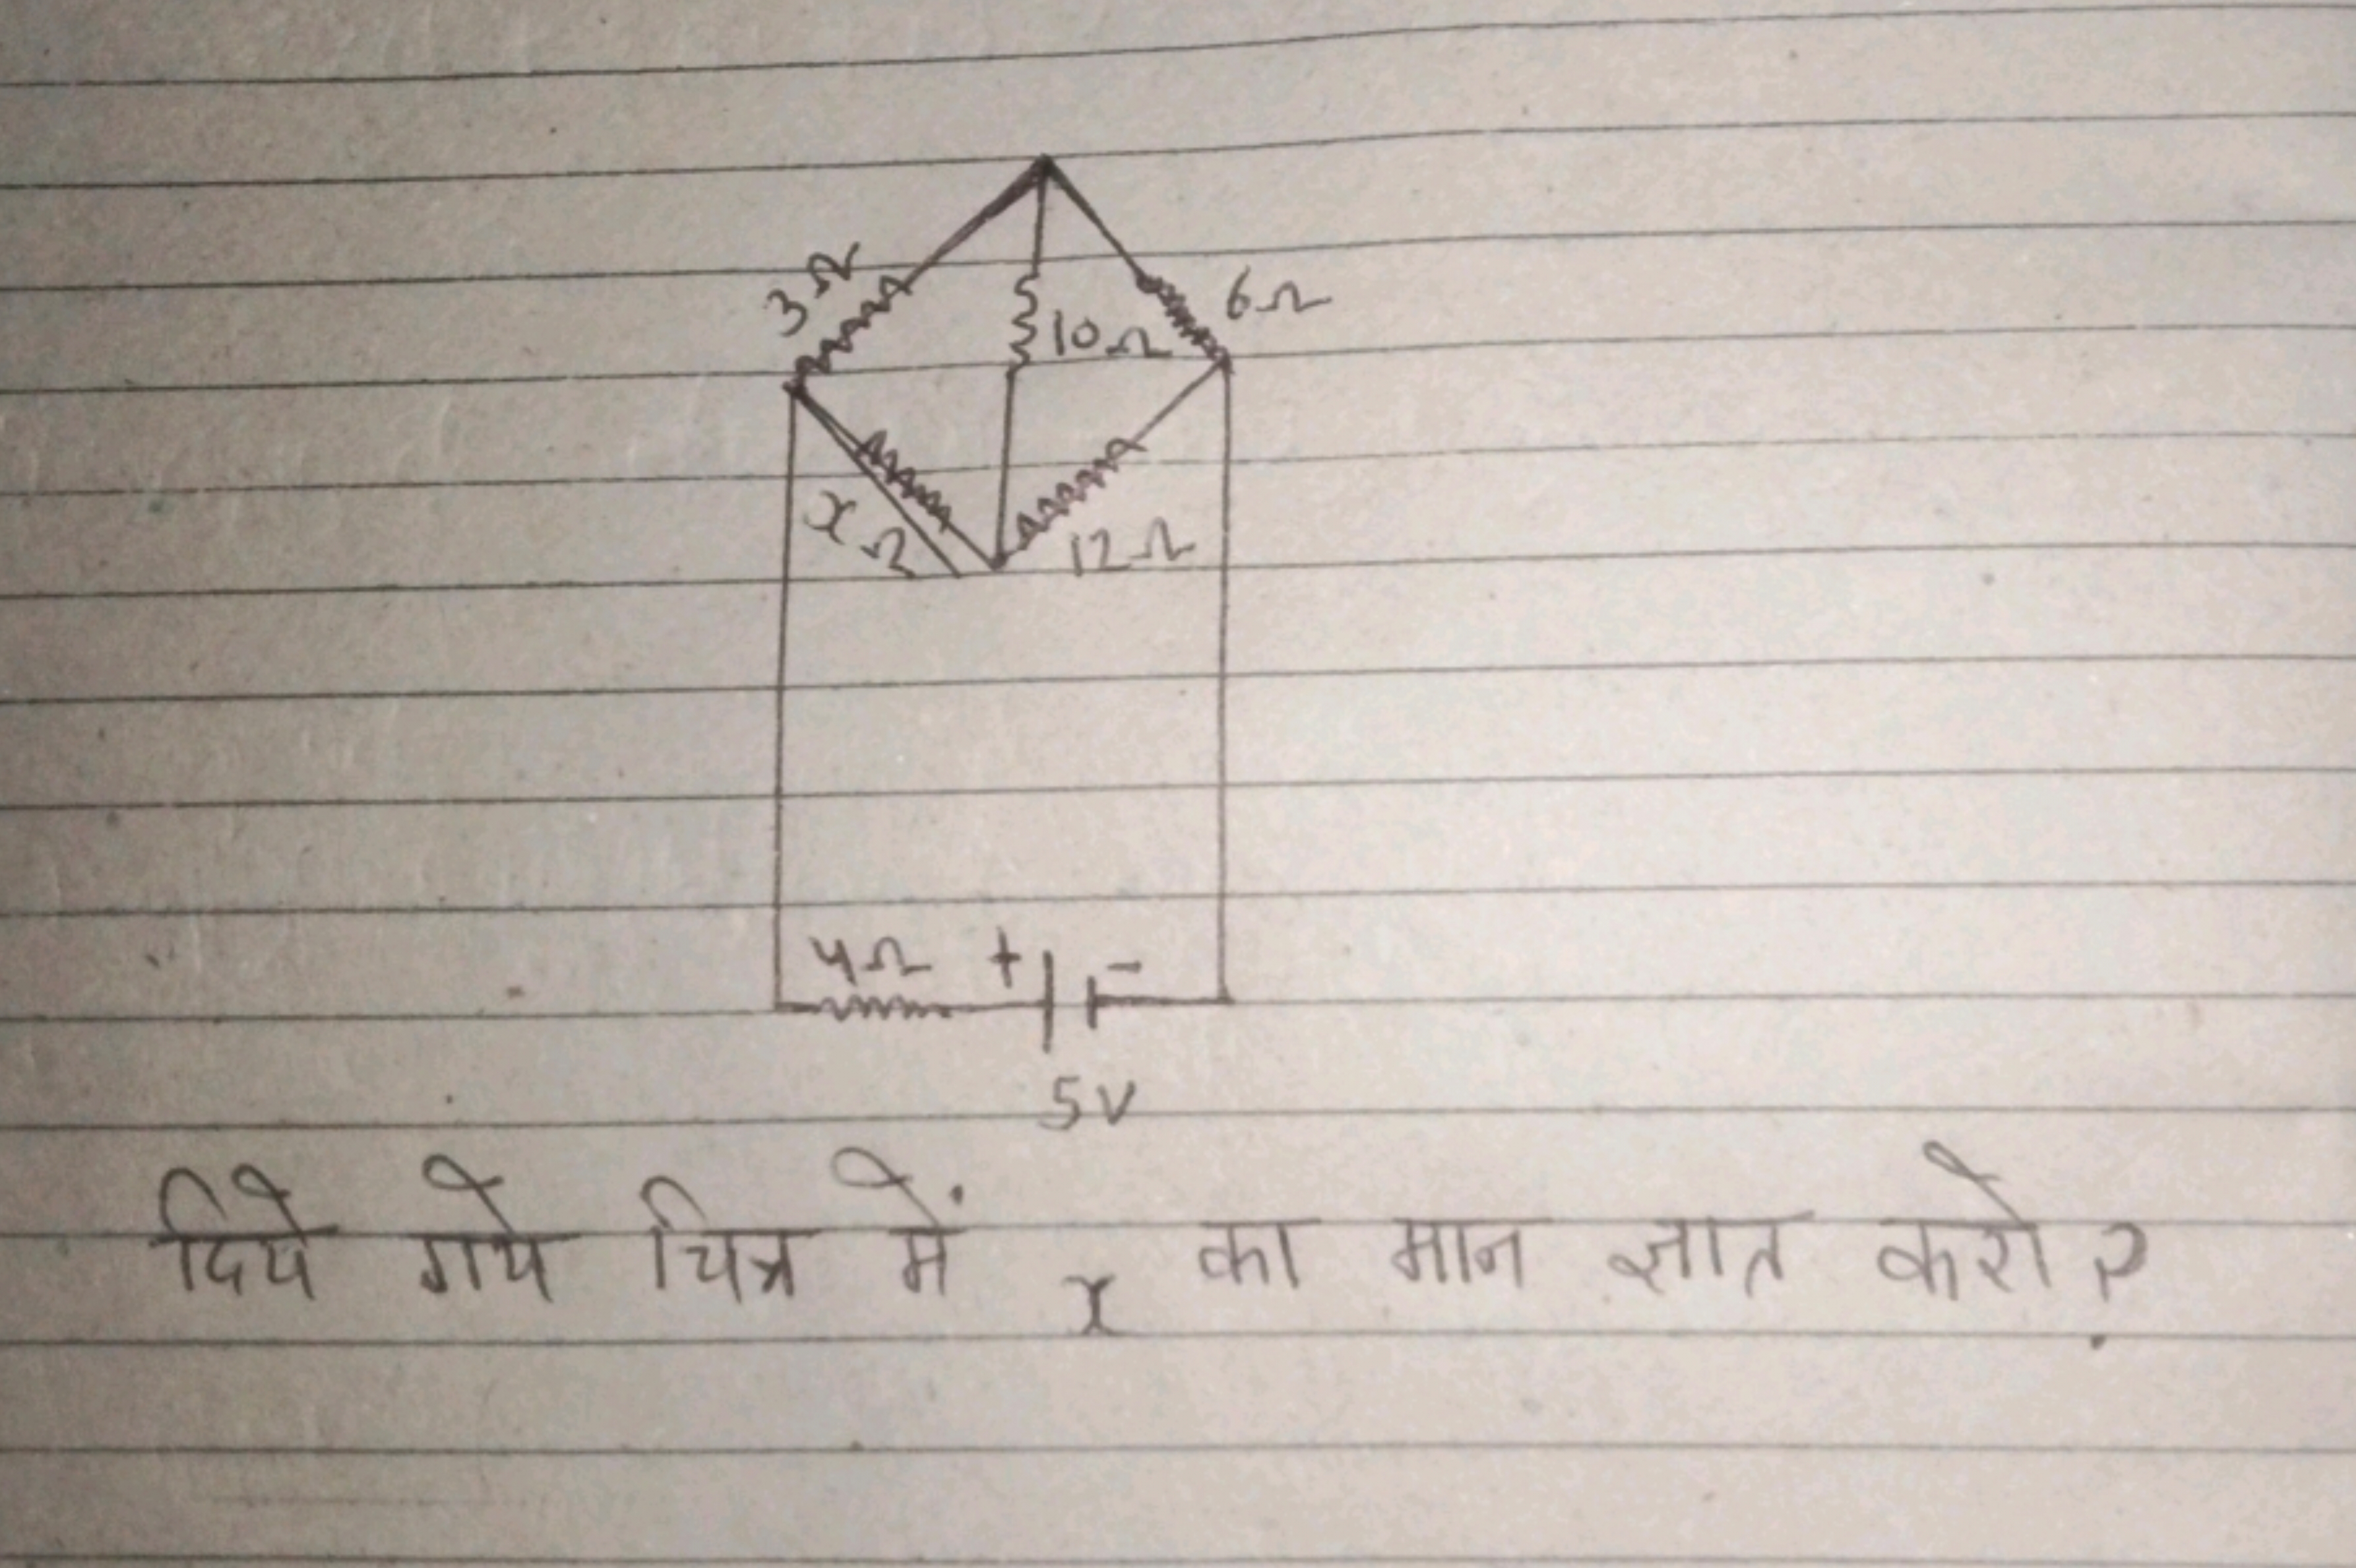 3Ω
6Ω
10Ω
xΩ
12Ω
4Ω + -
5V
दिये गये चित्र में x का मान ज्ञात करो?